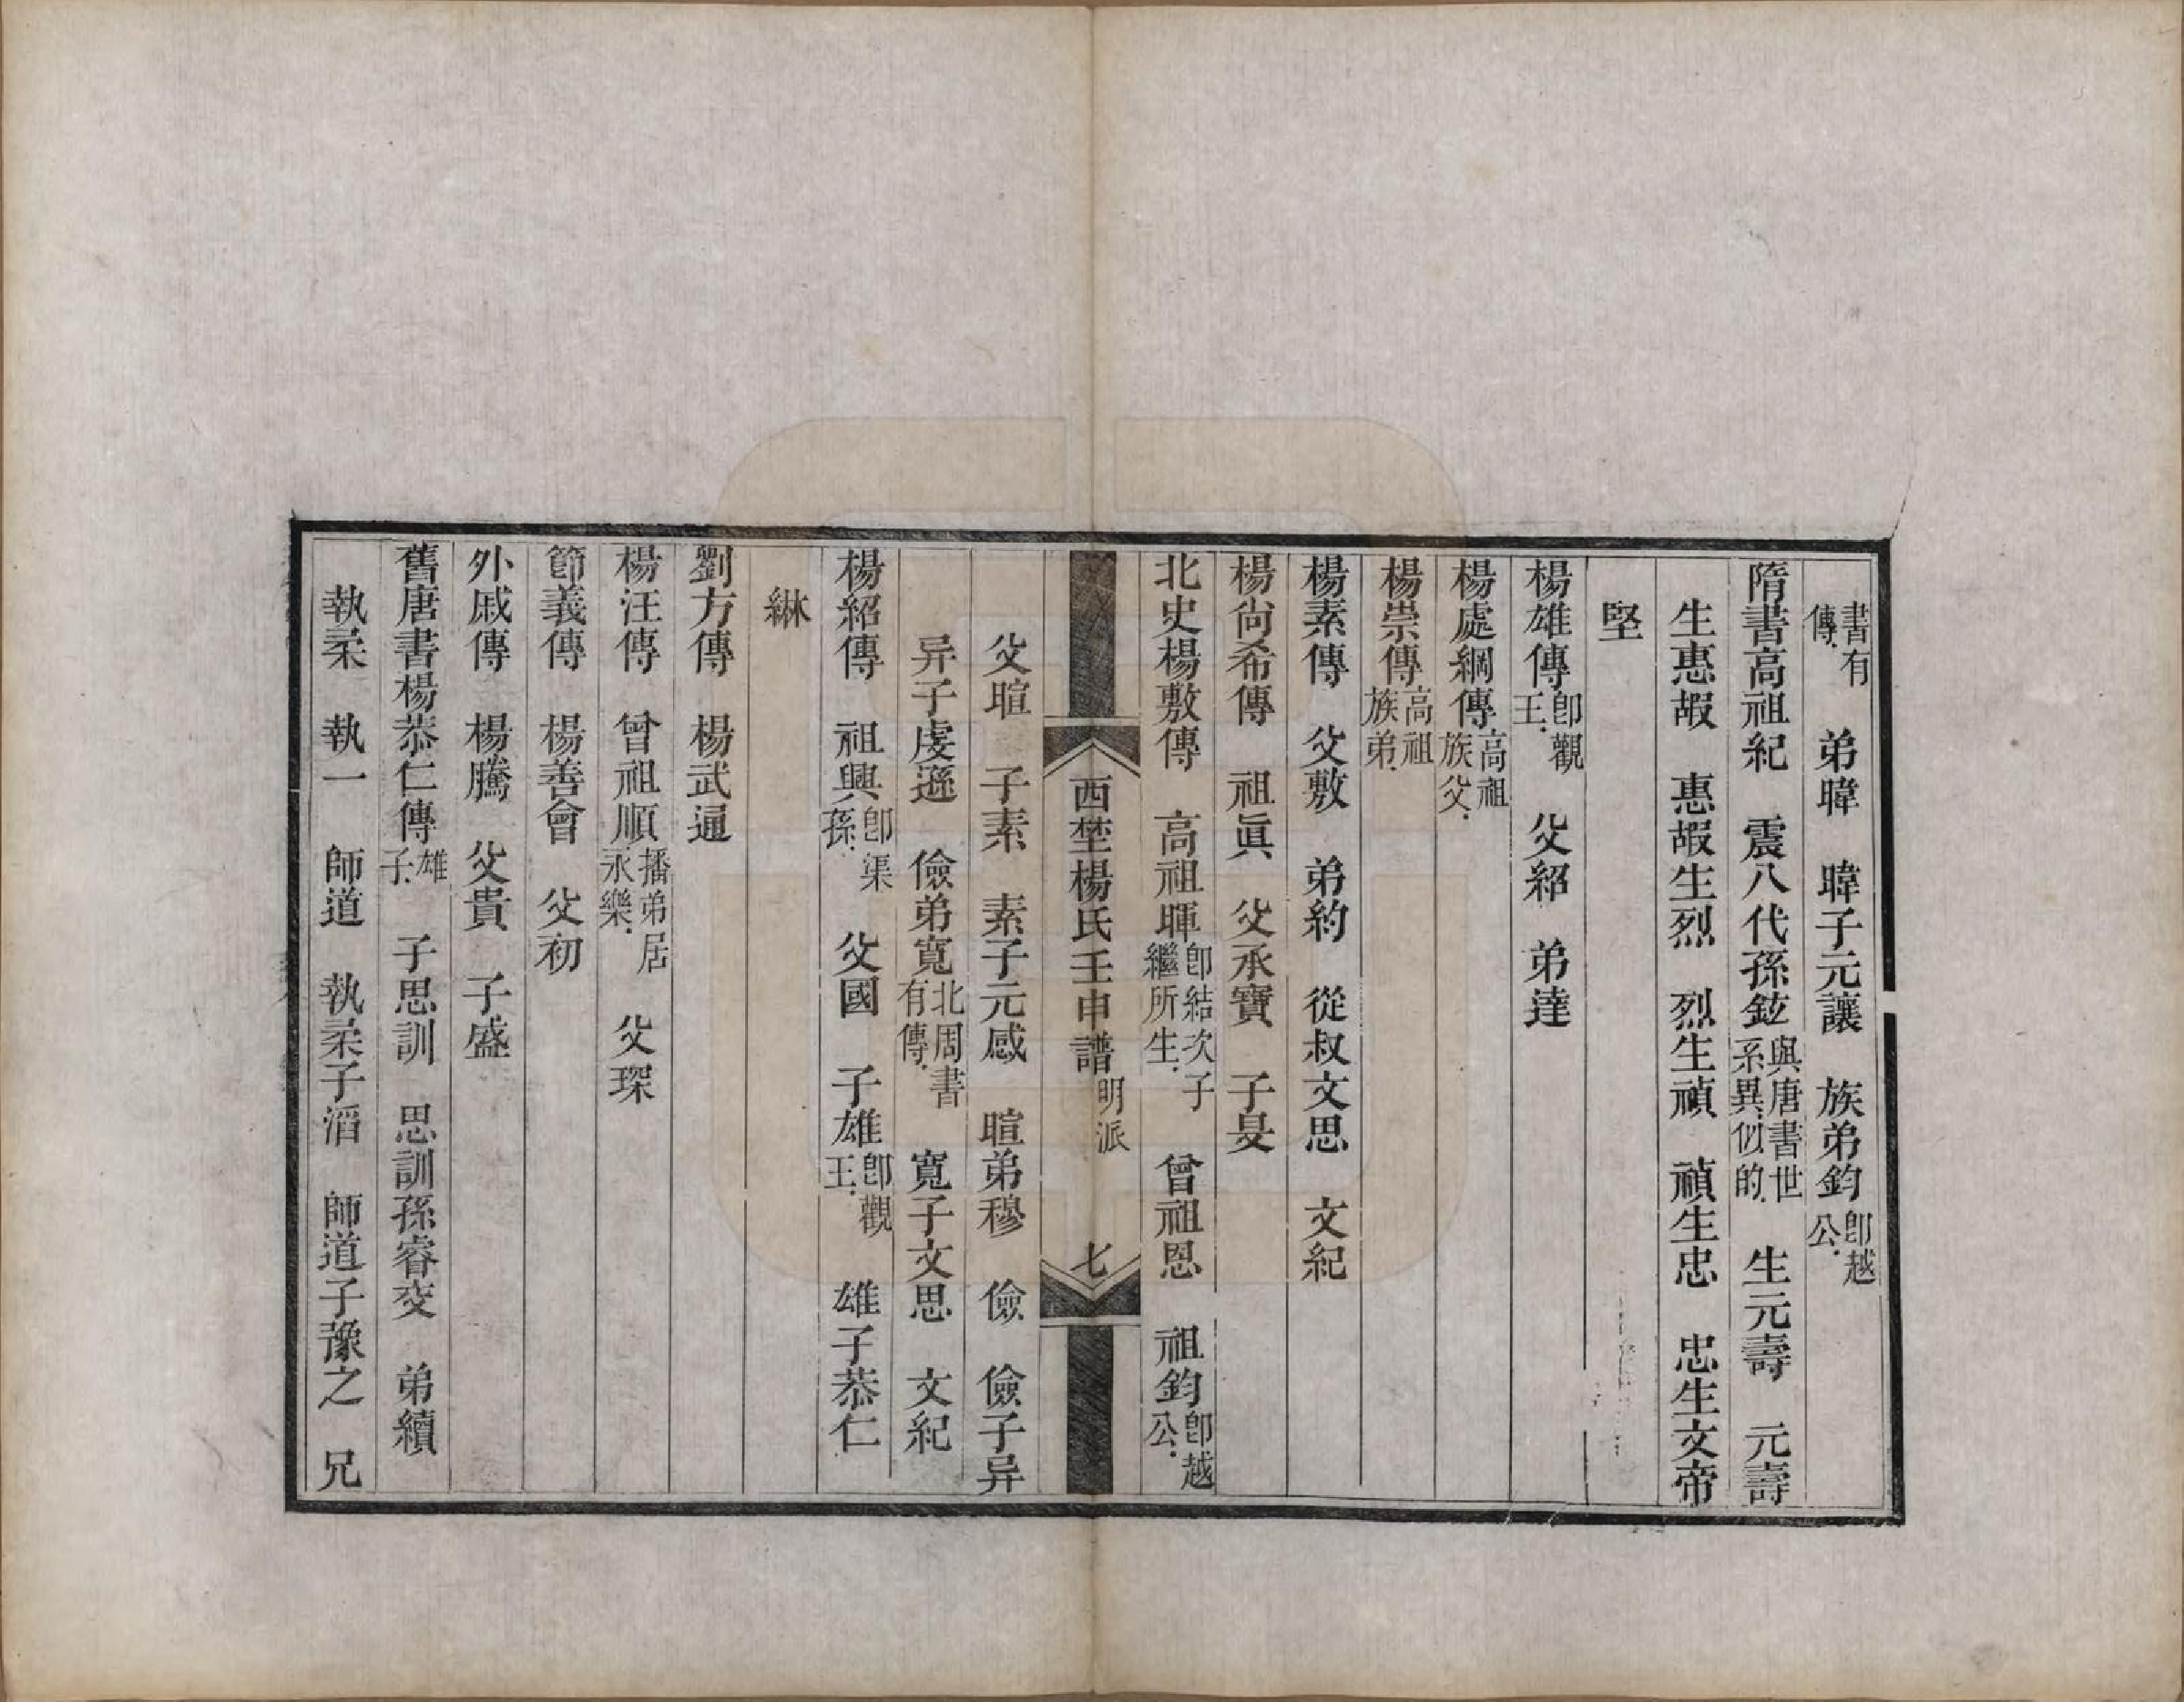 書有傳 弟暐 暐子元讓 族弟鈞即越公
隋書高祖紀 震八代孫鉉與唐書世系異似的 生元壽 元壽
生惠嘏 惠嘏生烈 烈生禎 禎生忠 忠生文帝
堅
楊雄傳即觀王 父紹 弟達
楊處綱傳高祖族父
楊崇傳高祖族弟
楊素傳 父敷 弟約 從叔文思 文紀
楊尙希傳 祖眞 父承寶 子旻
北史楊敷傳 高祖暉即結次子繼所生 曾祖恩 祖鈞即越公
西埜楊氏壬申譜明派 七
父暄 子素 素子元感 暄弟穆 儉 儉子异
异子虔遜 儉弟寬北周書有傳 寬子文思 文紀
楊紹傳 祖興即渠孫 父國 子雄即觀王 雄子恭仁
綝
劉方傳 楊武通
楊汪傳 曾祖順播弟居永樂 父琛
節義傳 楊善會 父初
外戚傳 楊騰 父貴 子盛
舊唐書楊恭仁傳雄子 子思訓 思訓孫睿交 弟續
執柔 執一 師道 執柔子滔 師道子豫之 兄